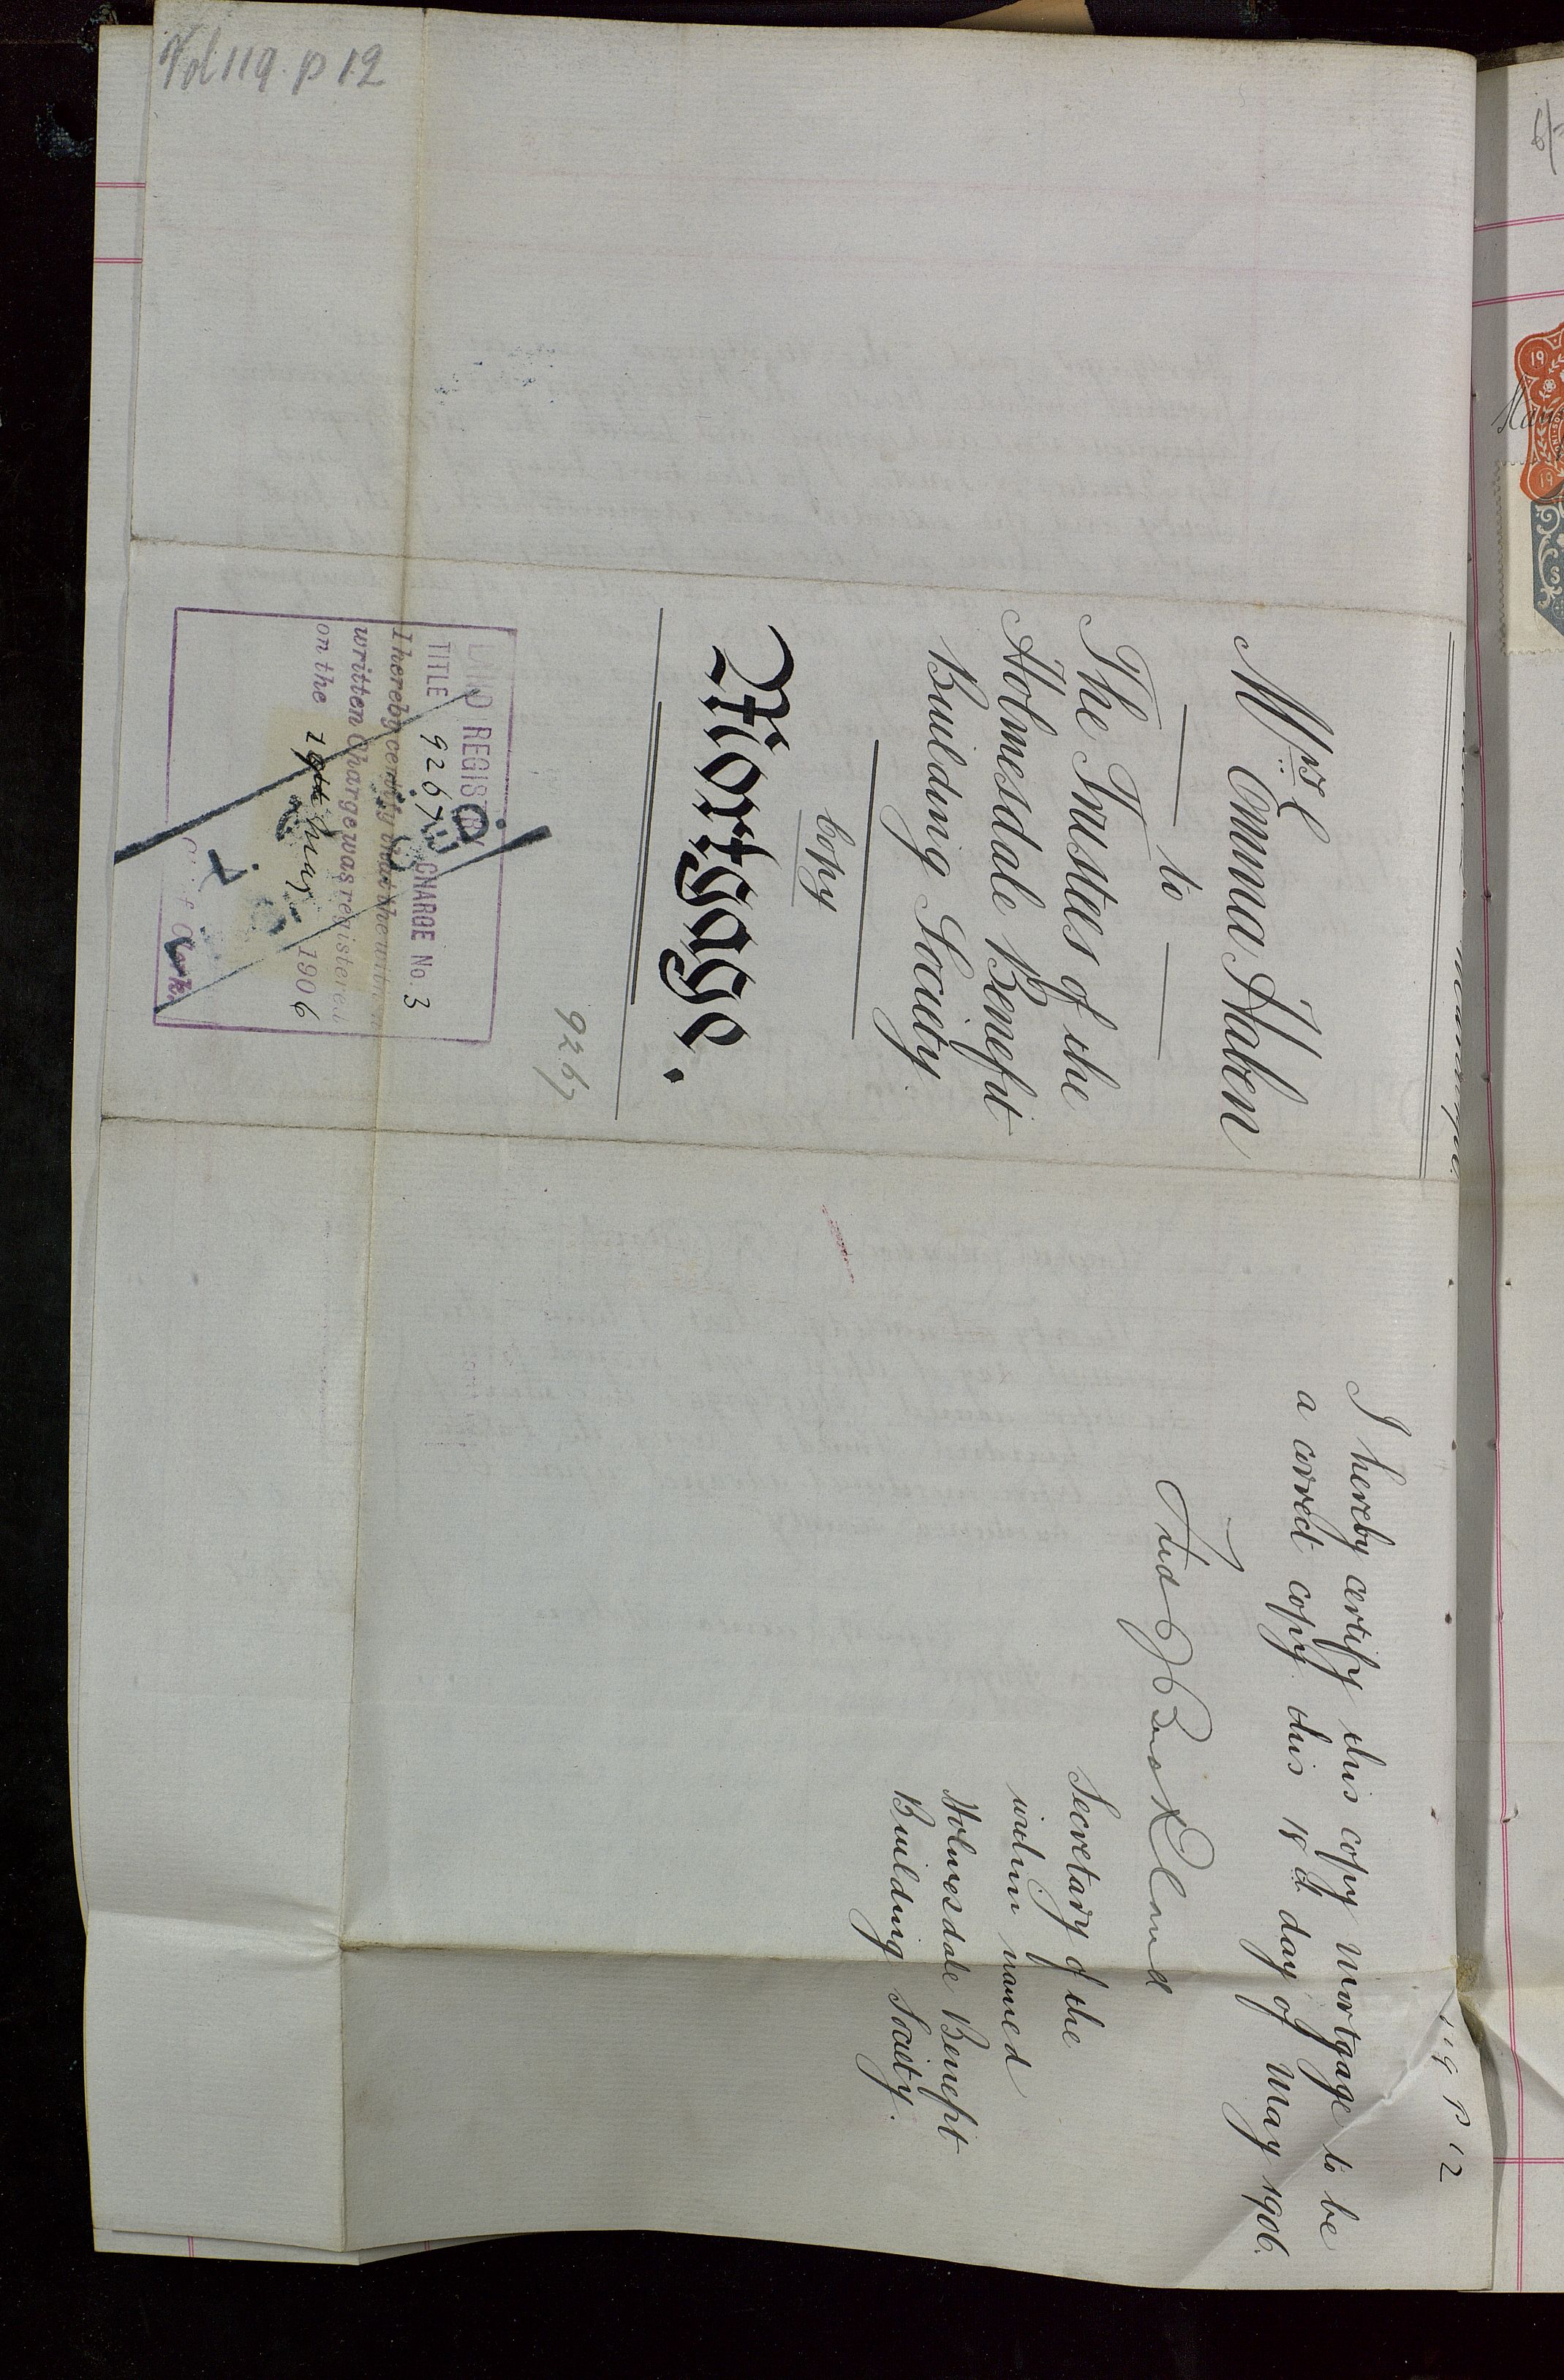 Vol 119. p 12
Mrs Emma Haben
to
The Trustees of the
Holmesdale Benefit
Building Society.
Copy
Mortgage.
9267
LAND REGISTRY
TITLE 9267 CHARGE No. 3
I hereby certify that the within
written Charge was registered
on the 29th May 1906
I hereby certify this copy mortgage to be
a correct copy this 18th day of May 1906.
Secretary of the
within named
Holmesdale Benefit
Building Society.
119 P 12
6/-
19
19